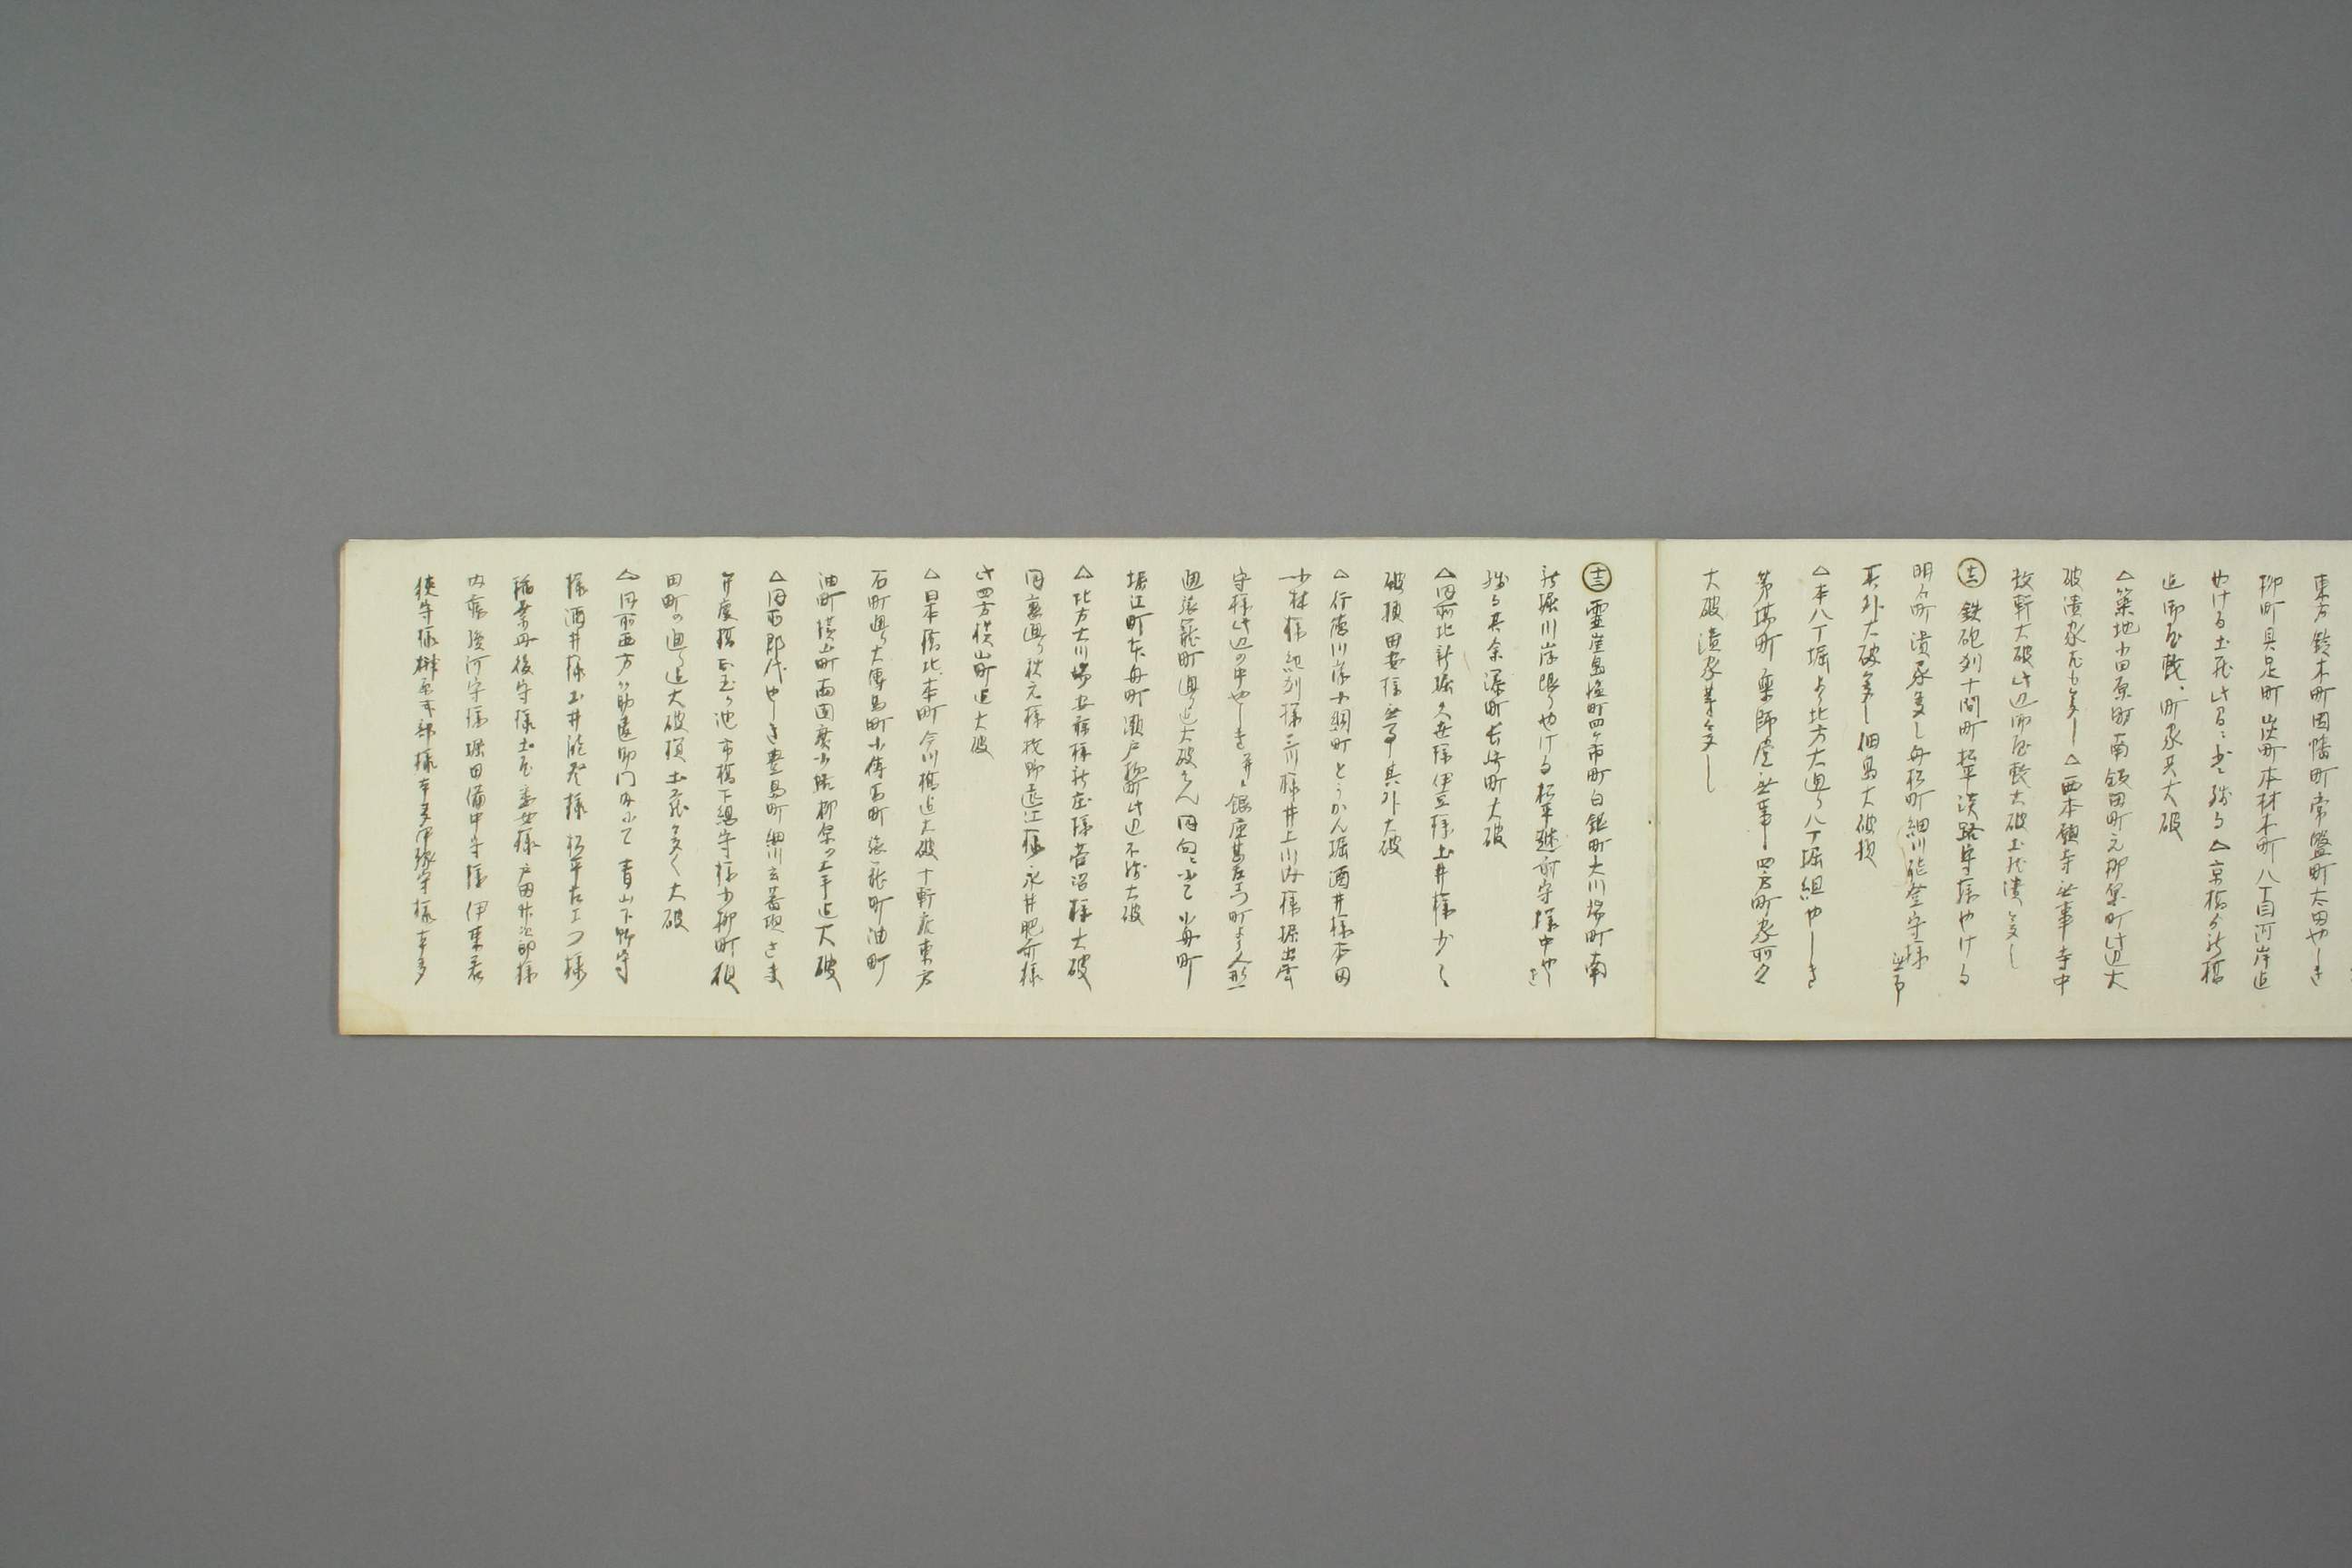 東方鈴木町因幡町常盤町太田やしき
柳町具足町炭町本材木町八丁目河岸迄
やける土蔵此る 少々残る△京橋ゟ新橋
迄御屋敷、町家共大破
△築地小田原町南飯田町元柳原町此辺大
破潰家尤も多し △西本願寺無事 寺中
数軒大破此辺御屋敷大破土蔵潰多し
鉄砲刕十間町松平淡路守様やける
明石町潰家多し舟松町細川能登守様
無事
其外大破多し佃島大破損
△本八丁堀より北方大通り八丁堀組やしき
茅場町薬師堂無事 四方町家所々
大破潰家等多し
十三 霊岸島塩町四ヶ市町白銀町大川端町南
新堀川岸限りやける松平越前守様中やしき
残る其余湊町長崎町大破
△同所北新堀久世様伊豆様土井様少し
破損田安様無事其外大破
△行徳川岸小網町とうかん堀酒井様本田
小林様紀刕様三川様井上川内様堀出雲
守様此辺の中やしき并ニ銀座甚左エ門町より人形
通張籠町通り迄大破そん同向ニ而て小舟町
堀江町本舟町瀬戸物町此辺不残大破
△北方大川端安藤様新庄様菅沼様大破
同裏通り秋元様牧野遠江様永井肥前様
此四方横山町迄大破
△日本橋北本町今川橋迄大破十軒店東方
石町通り大傳馬町小傳馬町張籠町油町
油町横山町両国広小路柳原の土手迄大破
△同所郡代やしき豊島町細川玄蕃頭さま
弁慶橋お玉ヶ池市橋下総守様小柳町俎
田町の通り迄大破損土蔵多く大破
△同所西方ハ筋違御門内ニて 青山下野守
様酒井様土井能登様松平左エ門様
稲葉丹後守様土屋采女様戸田竹次郎様
内藤駿河守様堀田備中守様伊東若
狭守様榊原式部様本多伊勢守様本多